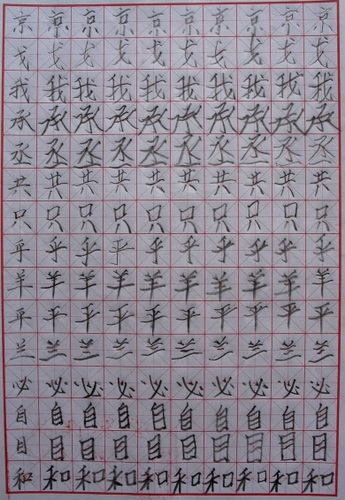 京京京京京京京京京京
戈戈戈戈戈戈戈戈戈戈
我我我我我我我我我我
承承承承承承承承承承
丞丞丞丞丞丞丞丞丞丞
共共共共共共共共共共
只只只只只只只只只只
乎乎乎乎乎乎乎乎乎乎
羊羊羊羊羊羊羊羊羊羊
平平平平平平平平平平
兰兰兰兰兰兰兰兰兰兰
必必必必必必必必必必
自自自自自自自自自自
目目目目目目目目目目
和和和和和和和和和和